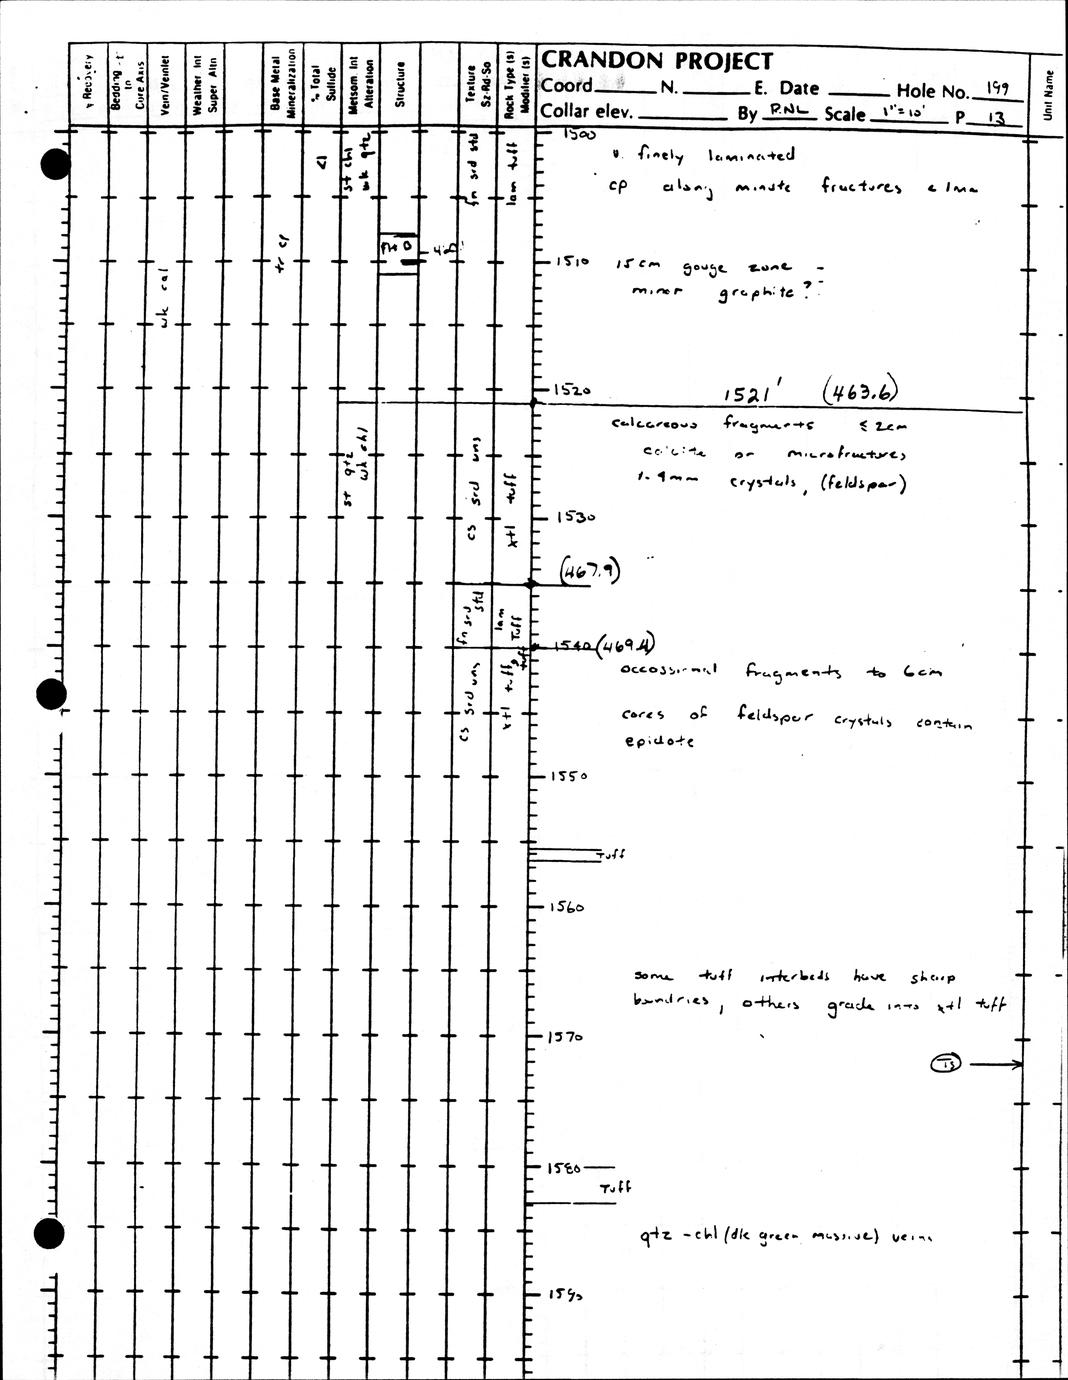 CRANDON PROJECT
Coord. N. E. Date Hole No. 199
Collar elev. By RNL Scale 1"=10' P 13
% Recovery
Bedding - t
to
Core Axis
Vein/Veinlet
Weather Int
Super Altn
Base Metal
Mineralization
% Total
Sulfide
Metsom. Int
Alteration
Structure
Texture
Sz-Rd-So
Rock Type (s)
Modifier (s)
Unit Name
1500
<1
st chl
wk qtz
fn srd std
lam tuff
v. finely laminated
cp along minute fractures < 1mm
tr cp
wk cal
1510
15cm gouge zone -
minor graphite?
1520
1521' (463.6)
calcareous fragments ≤ 2cm
calcite on microfractures
1-4mm crystals, (feldspar)
st qtz
wk chl
cs srd uns
xtl tuff
1530
(467.9)
fn srd
std
lam
Tuff
1540 (469.4)
cs srd uns
xtl tuff,
tuff
occossional fragments to 6cm
cores of feldspar crystals contain
epidote
1550
Tuff
1560
some tuff interbeds have sharp
boundries, others grade into xtl tuff
1570
TS
1580
Tuff
qtz - chl (dk green massive) veins
1590